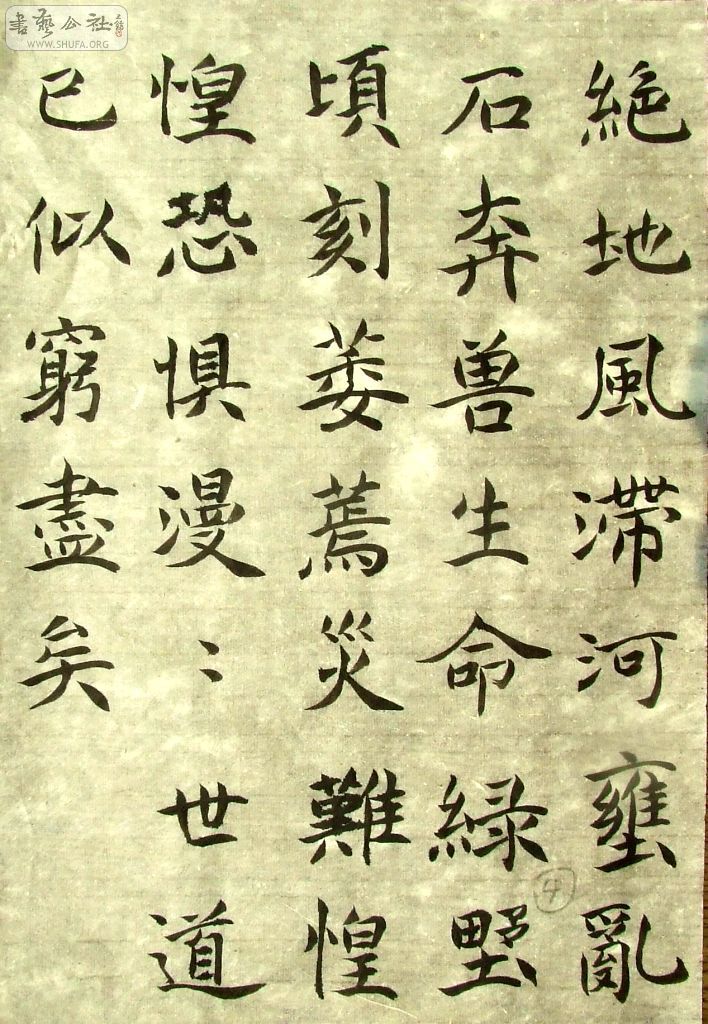 書藝公社
WWW.SHUFA.ORG
絕地風滯河壅亂
石奔兽生命緑野
頃刻萎蔫災難惶
惶恐惧漫〻世道
已似窮盡矣
4